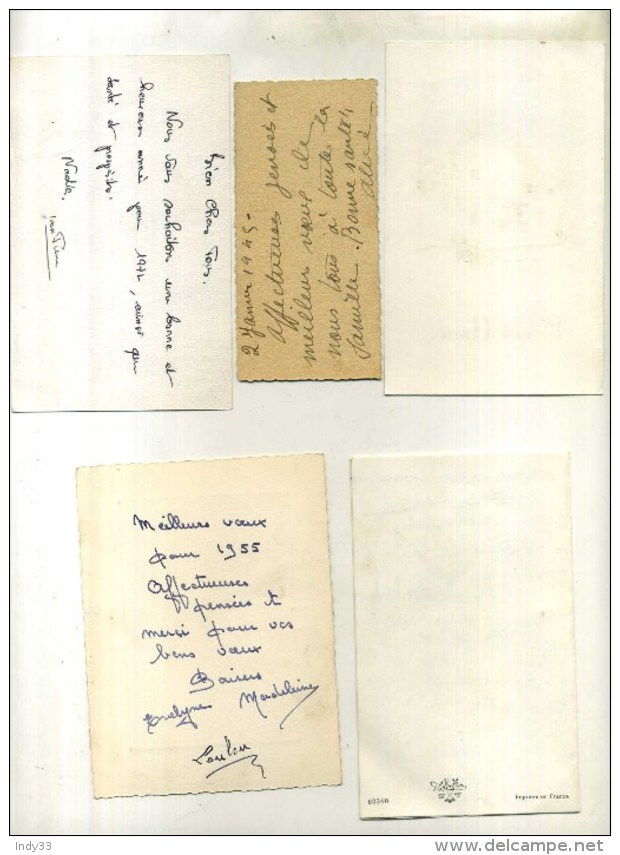 Bien Chers Tous.
Nous vous souhaitons une bonne et
heureuse année pour 1972, ainsi que
santé et prospérité.
Nadia.
2 Janvier 1945-
Affectueuses pensées et
meilleurs vœux de
nous tous à toute la
famille. Bonne santé,
Meilleurs vœux
pour 1955
Affectueuses
pensées et
merci pour vos
bons vœux
Baisers
Evelyne Madeleine
Loulou
60340
Imprimé en France
Indy33
www.delcampe.net